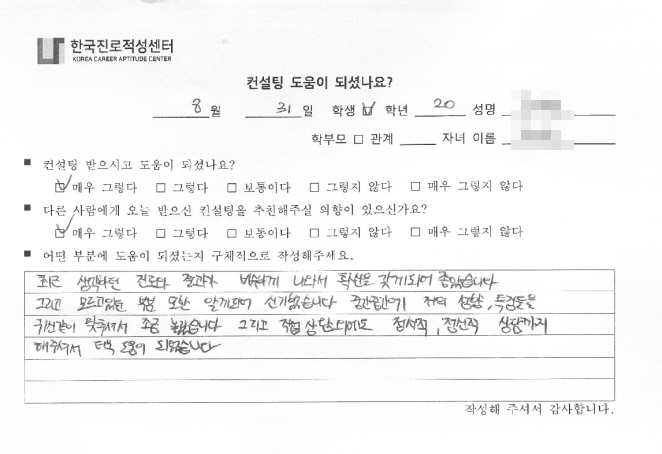 한국진로적성센터
KOREA CAREER APTITUDE CENTER
컨설팅 도움이 되셨나요?
8 월 31 일 학생 ☑ 학년 20 성명
학부모 □ 관계 자녀 이름
■ 컨설팅 받으시고 도움이 되셨나요?
☑ 매우 그렇다 □ 그렇다 □ 보통이다 □ 그렇지 않다 □ 매우 그렇지 않다
■ 다른 사람에게 오늘 받으신 컨설팅을 추천해주실 의향이 있으신가요?
☑ 매우 그렇다 □ 그렇다 □ 보통이다 □ 그렇지 않다 □ 매우 그렇지 않다
■ 어떤 부분에 도움이 되셨는지 구체적으로 작성해주세요.
최근 생각하던 진로와 결과가 비슷하게 나와서 확신을 갖게되어 좋았습니다
그리고 모르고있던 부분 또한 알게되어 신기했습니다 중간중간에 저의 성향, 특징들을
귀신같이 맞추셔서 조금 놀랐습니다 그리고 직업 상담 정서적, 정신적 상담까지
해주셔서 더욱 도움이 되었습니다
작성해 주셔서 감사합니다.